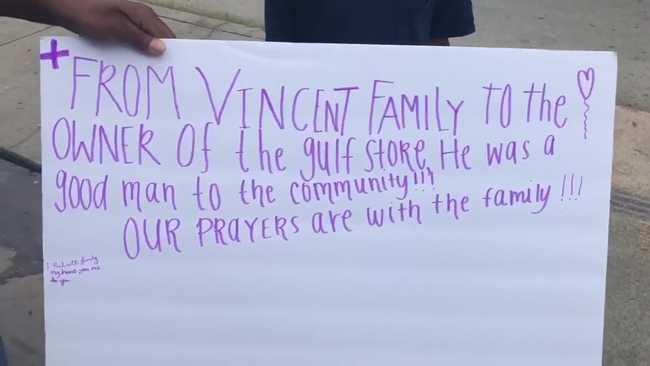 FROM VINCENT FAMILY TO the
OWNER OF the gulf STORE. He was a
good man to the community!!!
OUR PRAYERS are with the family!!!
family
my heart
you.